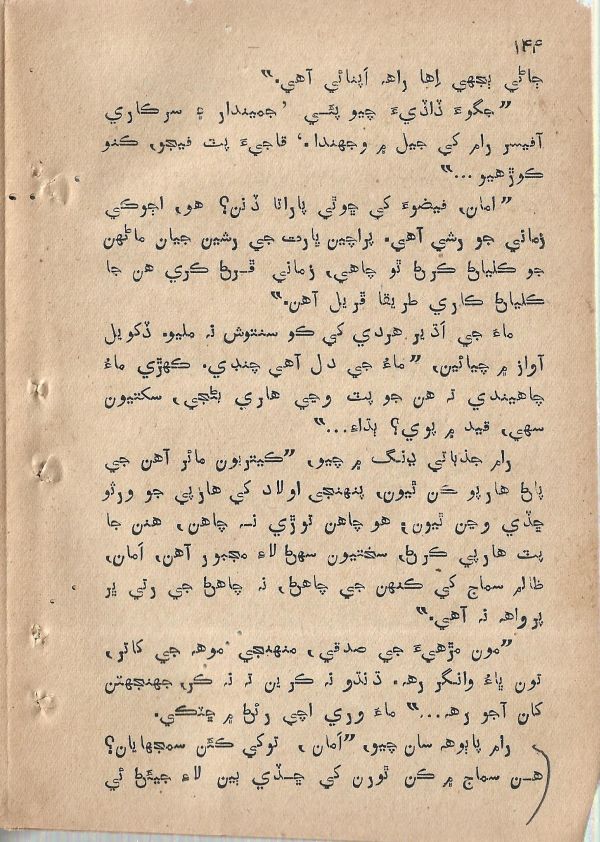 ۱۴۴
ڄاڻي ٻجهي اِها راهہ اَپنائي آهي.“
”جگوءَ ڏاڏيءَ چيو پئـي ’جميندار ۽ سرڪاري
آفيسر رام کي جيل ۾ وجهندا.‘ قاجيءَ پٽ فيجو، ڪنو
ڪوڙهيو...“
”امان، فيضوءَ کي ڇوٿي پاراتا ڏئن؟ هو، اجوڪي
زماني جو رشي آهي. پراچين ڀارت جي رشين جيان ماڻهن
جو ڪلياڻ ڪرڻ ٿو چاهي، زماني ڦـرڻ ڪري هن جا
ڪلياڻ ڪاري طريقا ڦريل آهن.“
ماءَ جي اَڌير هردي کي ڪو سنتوش نہ مليو. ڏکويل
آواز ۾ چيائين، ”ماءُ جي دل آهي چندي. ڪهڙي ماءُ
چاهيندي تہ هن جو پٽ وڃي هاري بڻجي، سکتيون
سهي، قيد ۾ پوي؟ ٻڌاءِ...“
رام جذباتي ڍنگ ۾ چيو، ”ڪيتريون مائر آهن جي
پاڻ هارپو ڪن ٿيون، پنهنجي اولاد کي هارپي جو ورثو
ڇڏي وڃن ٿيون؛ هو چاهن توڙي نـہ چاهن، هنن جا
پٽ هارپي ڪرڻ، سختيون سهڻ لاءِ مجبور آهن، اَمان،
ظالم سماج کي ڪنهن جي چاهڻ، نہ چاهڻ جي رتي ڀر
پرواهہ نہ آهي.“
”مون مڙهيءَ جي صدقي، منهنجي موهہ جي کاتر،
تون ڀاءُ وانگر رهہ. ڌنڌو نہ ڪرين تہ نہ ڪر، جهنجهٽن
کان آجو رهہ...“ ماءَ وري اچي رئڻ ۾ ڇٽڪي.
رام پاٻوهہ سان چيو، ”اَمان، توکي ڪئن سمجهايان؟
هـن سماج ۾ ڪن ٿورن کي ڇـڏي ٻين لاءِ جيئڻ ئي